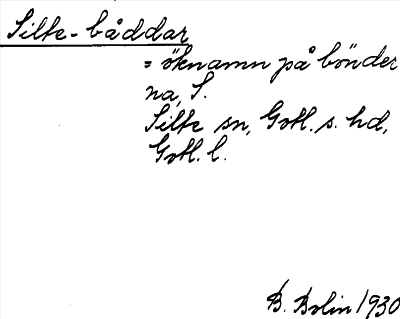 Silte-båddar
= öknamn på bönder
na, S.
Silte sn, Gotl. s. hd,
Gotl. l.
B. Bolin 1930